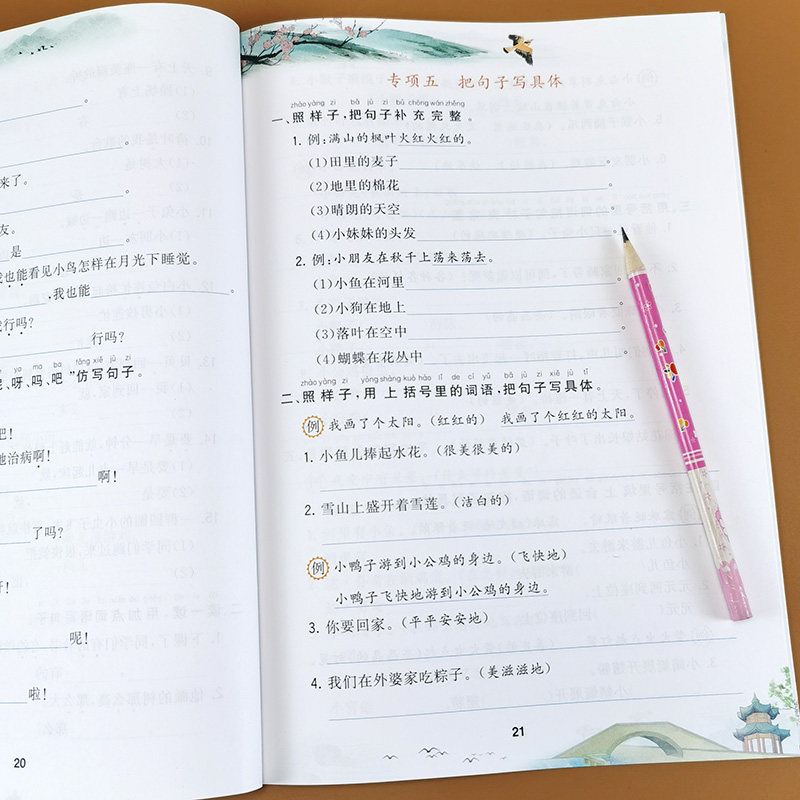 。
。
来了。
。
友。
是
。
我也能看见小鸟怎样在月光下睡觉。
，我也能
。
行吗？
行吗？
ya ma ba fǎng xiě jù zǐ
呢、呀、吗、吧”仿写句子。
吧！
他治病啊！
啊！
了吗？
呀！
呢！
啦！
20
专项五 把句子写具体
zhào yàng zi bǎ jù zi bǔ chōng wán zhěng
一、照样子，把句子补充完整。
1. 例：满山的枫叶火红火红的。
(1)田里的麦子。
(2)地里的棉花。
(3)晴朗的天空。
(4)小妹妹的头发。
2. 例：小朋友在秋千上荡来荡去。
(1)小鱼在河里。
(2)小狗在地上。
(3)落叶在空中。
(4)蝴蝶在花丛中。
zhào yàng zi yòng shàng kuò hào lǐ de cí yǔ bǎ jù zi xiě jù tǐ
二、照样子，用上括号里的词语，把句子写具体。
例 我画了个太阳。（红红的） 我画了个红红的太阳。
1. 小鱼儿捧起水花。（很美很美的）
2. 雪山上盛开着雪莲。（洁白的）
例 小鸭子游到小公鸡的身边。（飞快地）
小鸭子飞快地游到小公鸡的身边。
3. 你要回家。（平平安安地）
4. 我们在外婆家吃粽子。（美滋滋地）
21